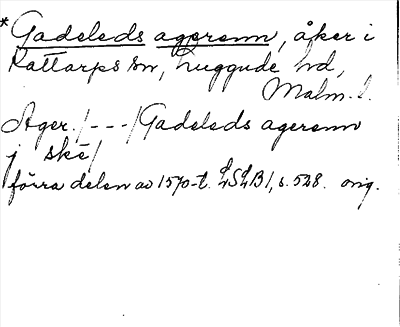 *Gadeleds agerenn, åker i
Kattarps sn, Luggude hd,
Malm. l.
Ager. /---/ Gadeleds agerenn
j skē/
förra delen av 1570-t. LSLB 1, s. 528. orig.